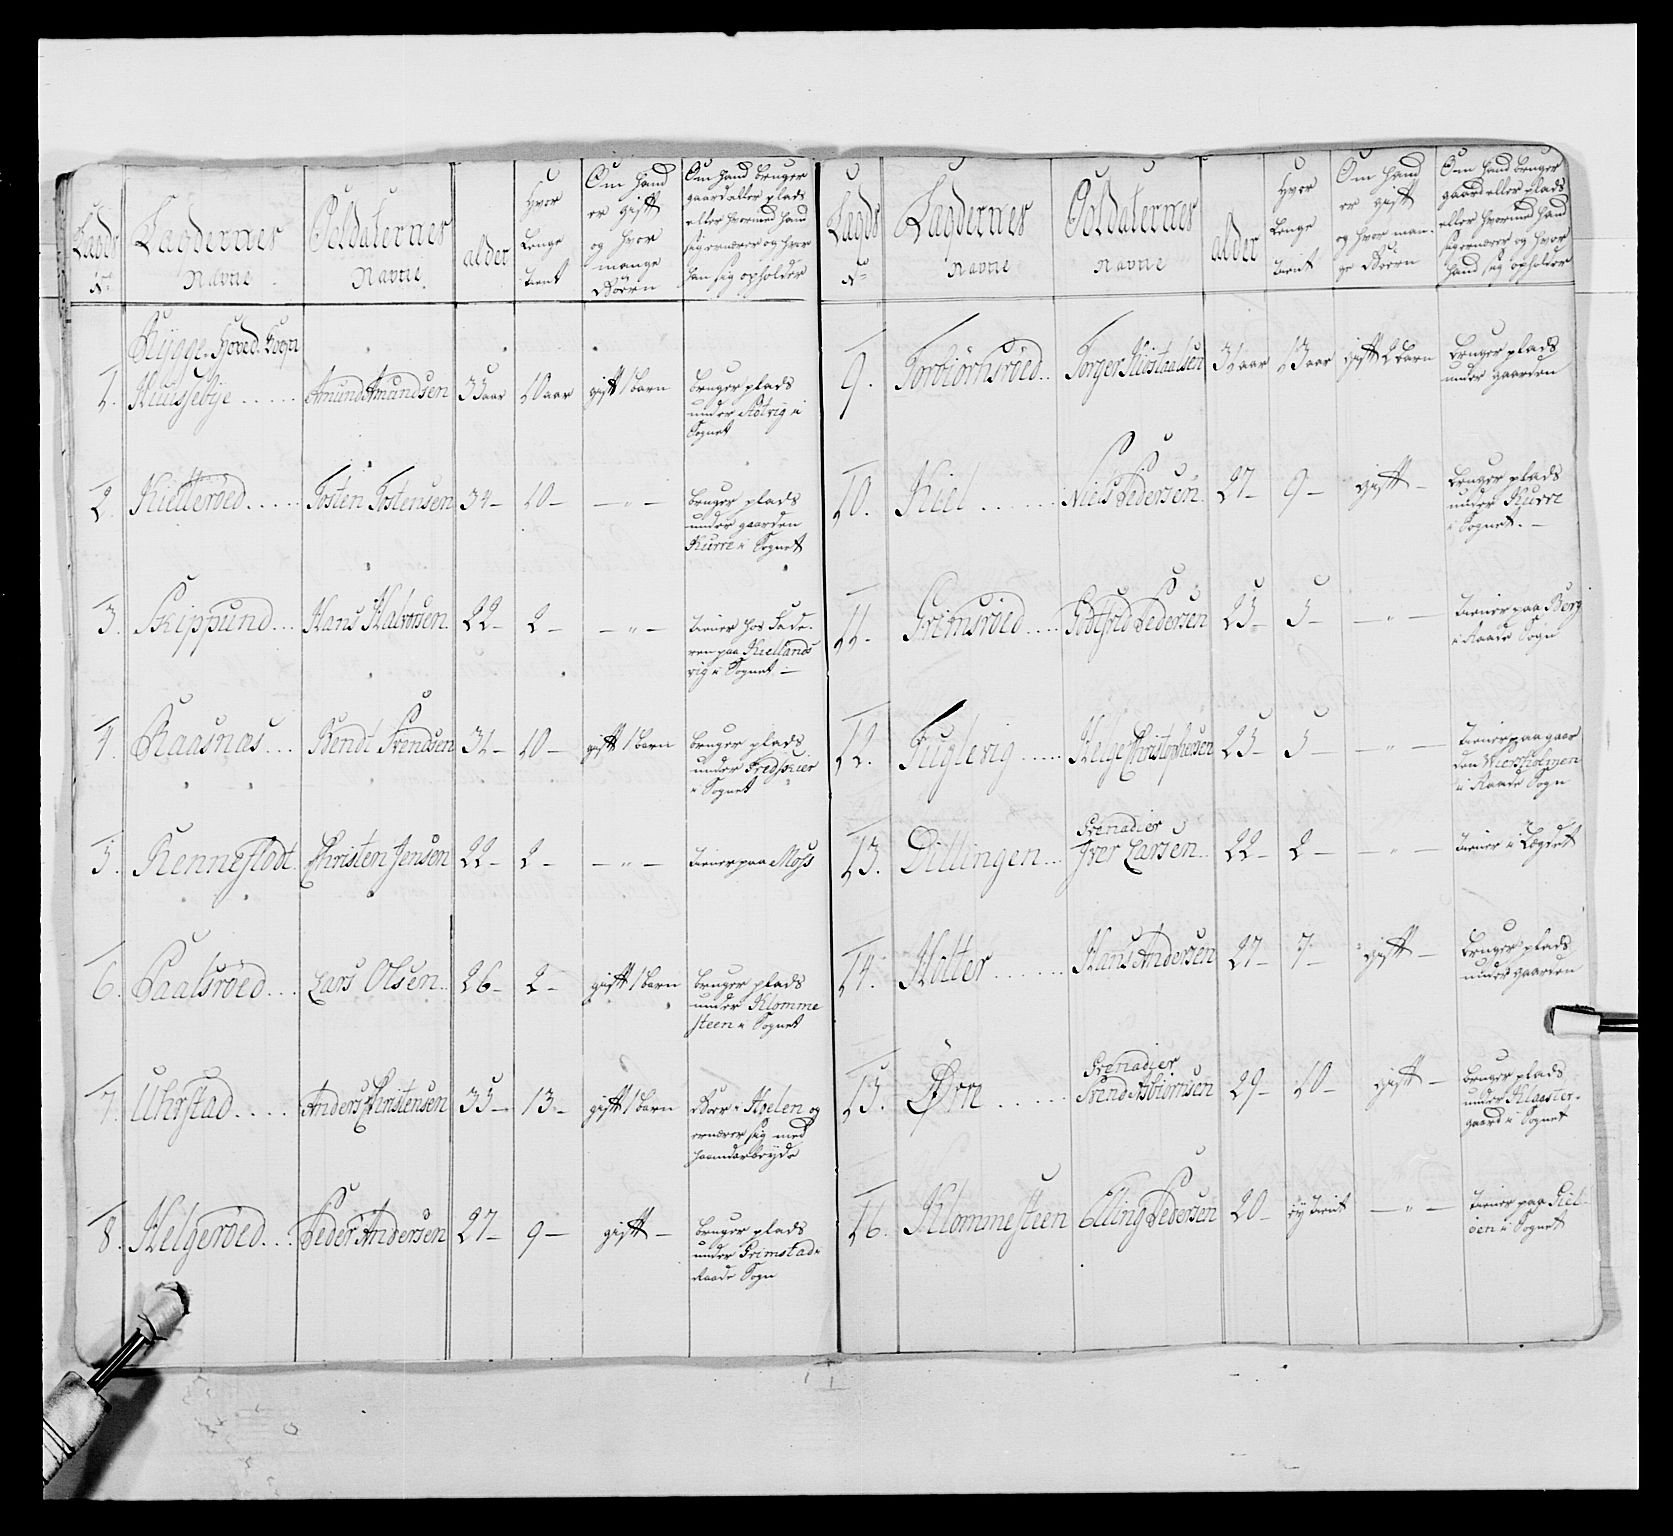 Lagds No
Lagdernes Navne
Soldaternes Navne
alder
Hvor Lenge tient
Om hand er gift og hvor mange Børn
Om hand bruger gaard eller plads eller hvormed hand sig ernærer og hvor han sig opholder
Rygge Hoved Sogn
1. Huusebye Amund Amundsen 35 aar 10 aar gift 1 barn bruger plads
under i
Sognet
2. Kielleröed Tosten Tostensen 34 – 10 – – " – bruger plads
under gaarden
Kurre i Sognet
3. Skippund Hans Halvorsen 22 – 2 – – " – tiener hos Fade-
ren paa Kiellands
vig i Sognet –
4. Raasnas Bendt Svendsen 31 – 10 – gift 1 barn bruger plads
under Fredskier
i Sognet
5. Kenneflodt Christen Jensen 22 – 2 – – " – tiener paa Moss
6. Paalsröed Lars Olsen 26 – 2 – gift 1 barn bruger plads
under Klomme
steen i Sognet
7. Uhrstad Anders Christensen 35 – 13 – gift 1 barn Boer i Hvelen og
ernærer sig med
haandarbeyde
8. Helgeröed Peder Andersen 27 – 9 – gift – bruger plads
under Grimstad i
Raade Sogn
Lagds No
Lagdernes Navne
Soldaternes Navne
alder
Hvor Lenge tient
Om hand er gift og hvor man-
ge Børn
Om hand bruger gaard eller plads eller hvormed hand sig ernærer og hvor hand sig opholder
9. Torbiörnsröed Torger 31 aar 13 aar gift 2 barn bruger plads
under gaarden
10. Kiel Niels Pedersen 27 – 9 – gift – bruger plads
under Kurre
i Sognet. –
11. Grimsröed Gotfrid Pedersen 25 – 5 – – " – tiener paa Berg
i Raade Sogn
12. Fuglevig Helge Christophersen 25 – 5 – – " – tiener paa gaar
den
i Raade Sogn
13. Dillingen Grenadier
Iver Larsen 22 – 2 – – " – tiener i Lægdet
14. Holter Hans Andersen 27 – 7 – gift – bruger plads
under gaarden
15. Örre Grenadier
Svend Asbiörnsen 29 – 10 – gift – bruger plads
under Kloster-
gaard i Sognet
16. Klommesteen Elling Pedersen 20 – ey tient – " – tiener paa Kiel-
öen i Sognet